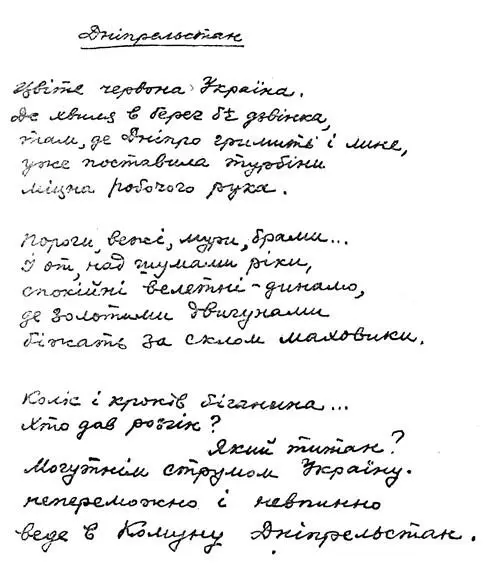 Дніпрельстан
Цвіте червона Україна.
Де хвиля в берег б'є дзвінка,
там, де Дніпро гримить і лине,
уже поставила турбіни
міцна робочого рука.
Пороги, вежі, мури, брами...
І от, над шумами ріки,
спокійні велетні-динамо,
де золотими двигунами
біжать за склом маховики.
Коліс і кроків біганина...
Хто дав розгін?
Який титан?
Могутнім струмом Україну
непереможно і невпинно
веде в Комуну Дніпрельстан.